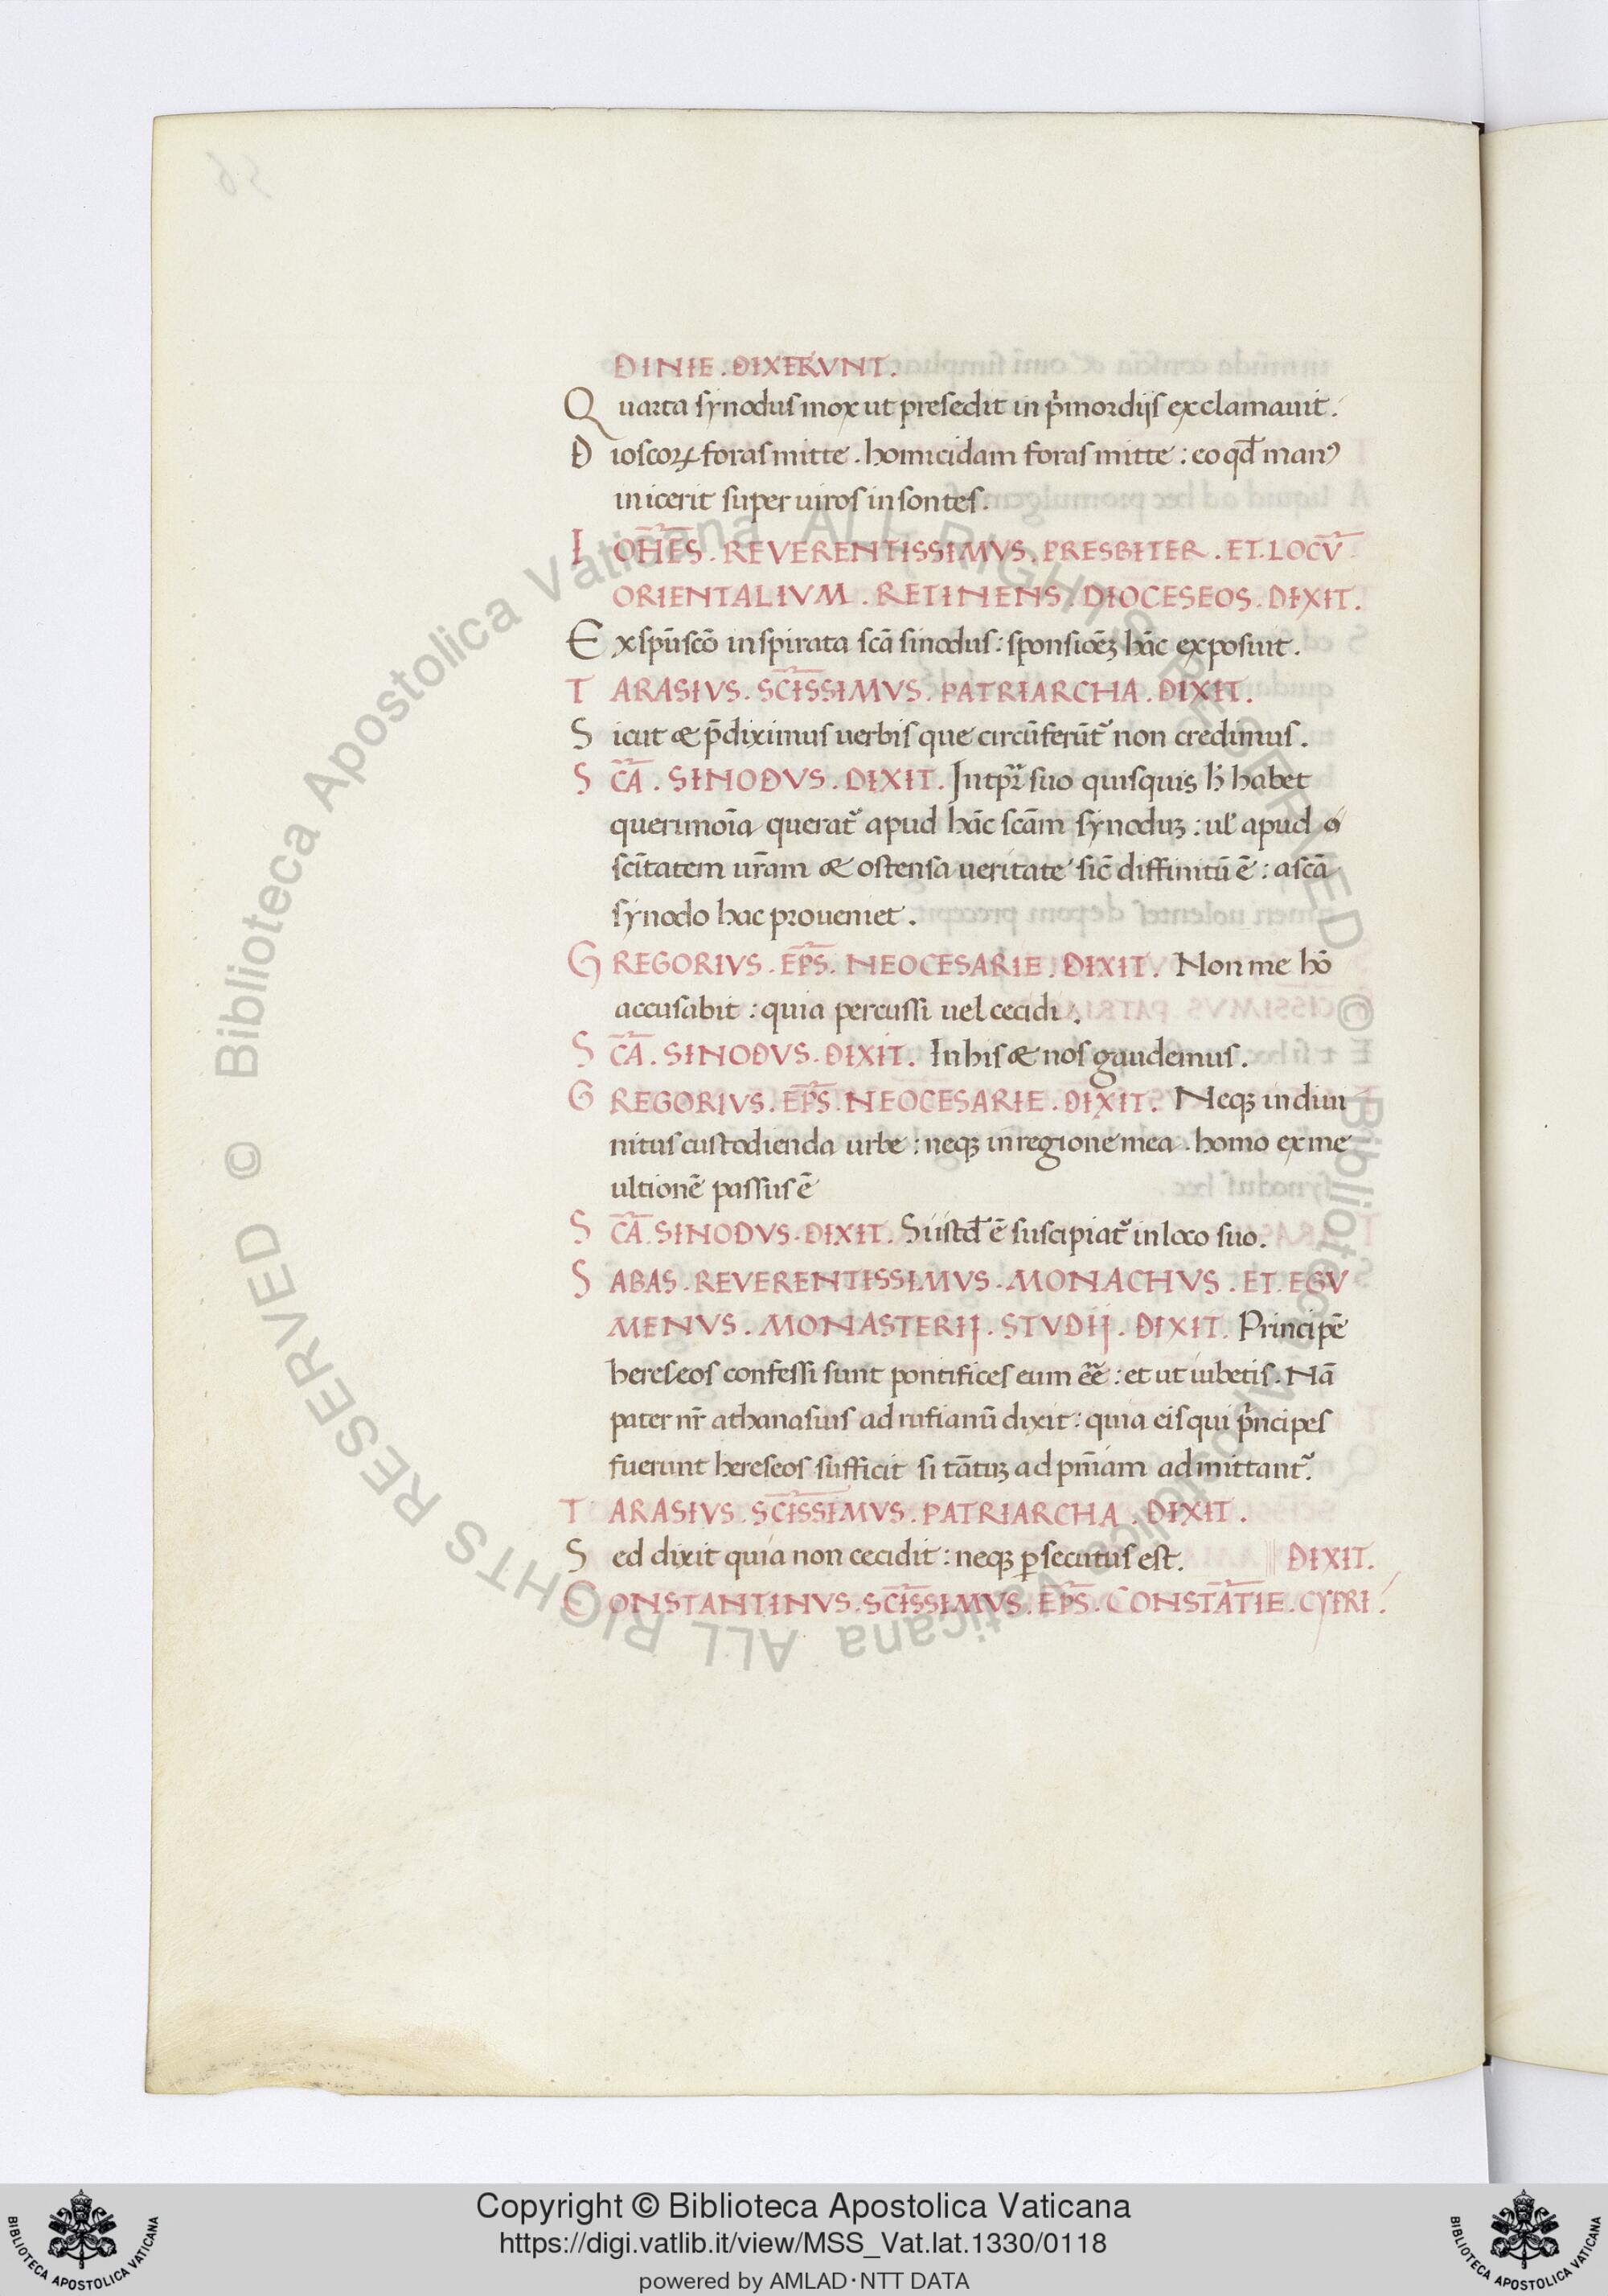 DINIE . DIXERVNT .
Quarta synodus mox ut presedit in pͥmordijs exclamauit .
Dioscoꝝ foras mitte . homicidam foras mitte : eo qđ manꝰ
inicerit super uiros insontes .
IOHE̅S . REVERENTISSIMVS . PRESBITER . ET . LOCV̅
ORIENTALIVM . RETINENS . DIOCESEOS . DIXIT .
Ex spu̅sco̅ inspirata sca̅ sinodus : sponsioe̅ꝫ ha̅c exposuit .
TARASIVS . SC̅ISSIMVS . PATRIARCHA . DIXIT .
Sicut & p̅diximus uerbis que circu̅feru̅t᷑ non credimus .
SC̅A . SINODVS . DIXIT . Intp̅r̅ suo quisquis h̅ habet
querimoi̅a querat᷑ apud ha̅c sca̅m synoduꝫ : ul̅ apud
sci̅tatem ur̅am & ostensa ueritate sic̅ diffinitu̅ e̅ : a sca̅
synodo hac proueniet .
GREGORIVS . EP̅S . NEOCESARIE . DIXIT . Non me ho̅
accusabit : quia percussi uel cecidi .
SC̅A . SINODVS . DIXIT . In his & nos gaudemus .
GREGORIVS . EP̅S . NEOCESARIE . DIXIT . Neqꝫ in diui
nitus custodienda urbe : neqꝫ in regione mea . homo ex me
ultione̅ passus e̅
SC̅A . SINODVS . DIXIT . Si istđ e̅ suscipiat᷑ in loco suo .
SABAS . REVERENTISSIMVS . MONACHVS . ET . EGV
MENVS . MONASTERIJ . STVDIJ . DIXIT . Principe̅
hereseos confessi sunt pontifices eum e̅e̅ : et ut iubetis . Na̅
pater nr̅ athanasius ad rufianu̅ dixit : quia eis qui pͥncipes
fuerunt hereseos sufficit si ta̅tuꝫ ad pni̅am admittant᷑ .
TARASIVS . SC̅ISSIMVS . PATRIARCHA . DIXIT .
Sed dixit quia non cecidit : neqꝫ ꝑsecutus est . DIXIT .
CONSTANTINVS . SC̅ISSIMVS . EP̅S . CONSTA̅TIE . CYPRI .
© Biblioteca Apostolica Vaticana ALL RIGHTS RESERVED © Biblioteca Apostolica Vaticana ALL RIGHTS RESERVED
Copyright © Biblioteca Apostolica Vaticana
https://digi.vatlib.it/view/MSS_Vat.lat.1330/0118
powered by AMLAD·NTT DATA
BIBLIOTECA APOSTOLICA VATICANA
BIBLIOTECA APOSTOLICA VATICANA